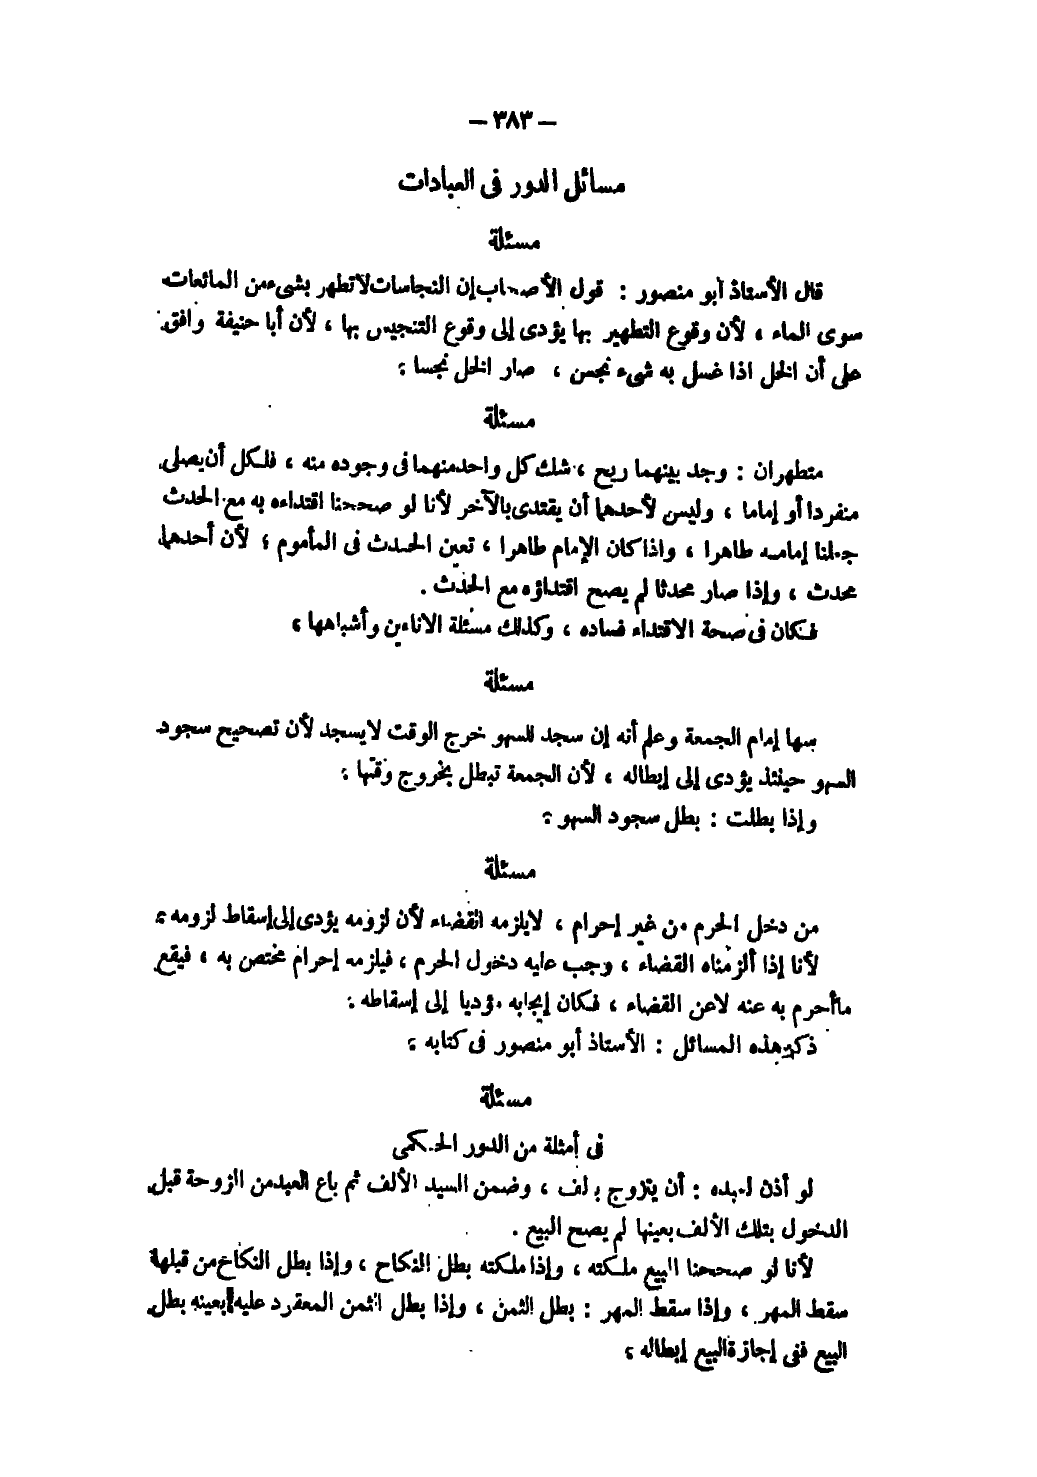 — ٣٨٣ —
مسائل الدور فى العبادات
مسئلة
قال الأستاذ أبو منصور : قول الأصحاب إن النجاسات لا تطهر بشىء من المائعات
سوى الماء ، لأن وقوع التطهير بها يؤدى إلى وقوع التنجيس بها ، لأن أبا حنيفة وافق
على أن الخل اذا غسل به شىء نجس ، صار الخل نجسا ؛
مسئلة
متطهران : وجد بينهما ريح ، شك كل واحد منهما فى وجوده منه ، فلكل أن يصلى
منفردا أو إماما ، وليس لأحدهما أن يقتدى بالآخر لأنا لو صححنا اقتداءه به مع الحدث
جعلنا إمامه طاهرا ، واذا كان الإمام طاهرا ، تعين الحدث فى المأموم ؛ لأن أحدهما
محدث ، وإذا صار محدثا لم يصح اقتداؤه مع الحدث .
فكان فى صحة الاقتداء فساده ، وكذلك مسئلة الاناءين وأشباهها ؛
مسئلة
سها إمام الجمعة وعلم أنه إن سجد للسهو خرج الوقت لا يسجد لأن تصحيح سجود
السهو حينئذ يؤدى إلى إبطاله ، لأن الجمعة تبطل بخروج وقتها ؛
وإذا بطلت : بطل سجود السهو ؛
مسئلة
من دخل الحرم من غير إحرام ، لايلزمه القضاء لأن لزومه يؤدى إلى إسقاط لزومه ؛
لأنا إذا ألزمناه القضاء ، وجب عليه دخول الحرم ، فيلزمه إحرام مختص به ، فيقع
ماأحرم به عنه لاعن القضاء ، فكان إيجابه مؤديا إلى إسقاطه ؛
ذكر هذه المسائل : الأستاذ أبو منصور فى كتابه ؛
مسئلة
فى أمثلة من الدور الحكمى
لو أذن لعبده : أن يتزوج بألف ، وضمن السيد الألف ثم باع العبد من الزوجة قبل
الدخول بتلك الألف بعينها لم يصح البيع .
لأنا لو صححنا البيع ملكته ، وإذا ملكته بطل النكاح ، وإذا بطل النكاح من قبلها
سقط المهر ، وإذا سقط المهر : بطل الثمن ، وإذا بطل الثمن المعقود عليه بعينه بطل
البيع فنى إجازة البيع إبطاله ؛